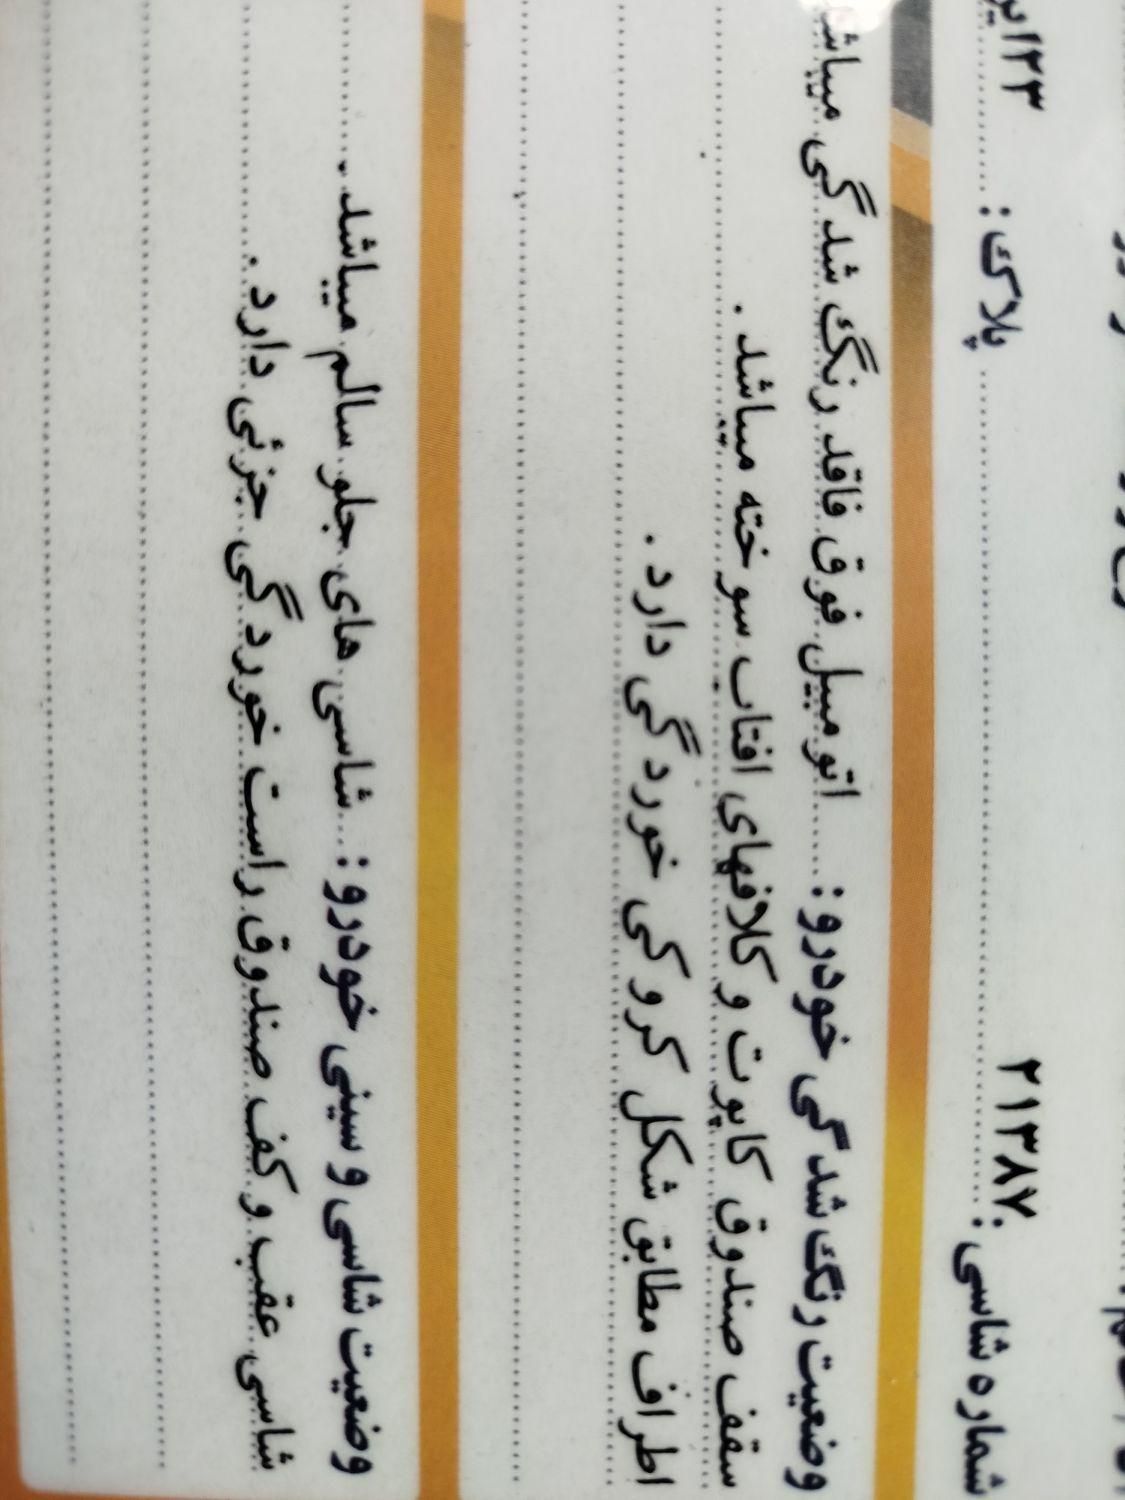 شماره شاسی: ۲۱۳۸۷ پلاک: ۲۳
وضعیت رنگ شدگی خودرو: اتومبیل فوق فاقد رنگ شدگی میباشد
سقف صندوق کاپوت و کلافهای افتاب سوخته میباشد.
اطراف مطابق شکل کروکی خوردگی دارد.
وضعیت شاسی و سینی خودرو: شاسی های جلو سالم میباشد.
شاسی عقب و کف صندوق راست خوردگی جزئی دارد.